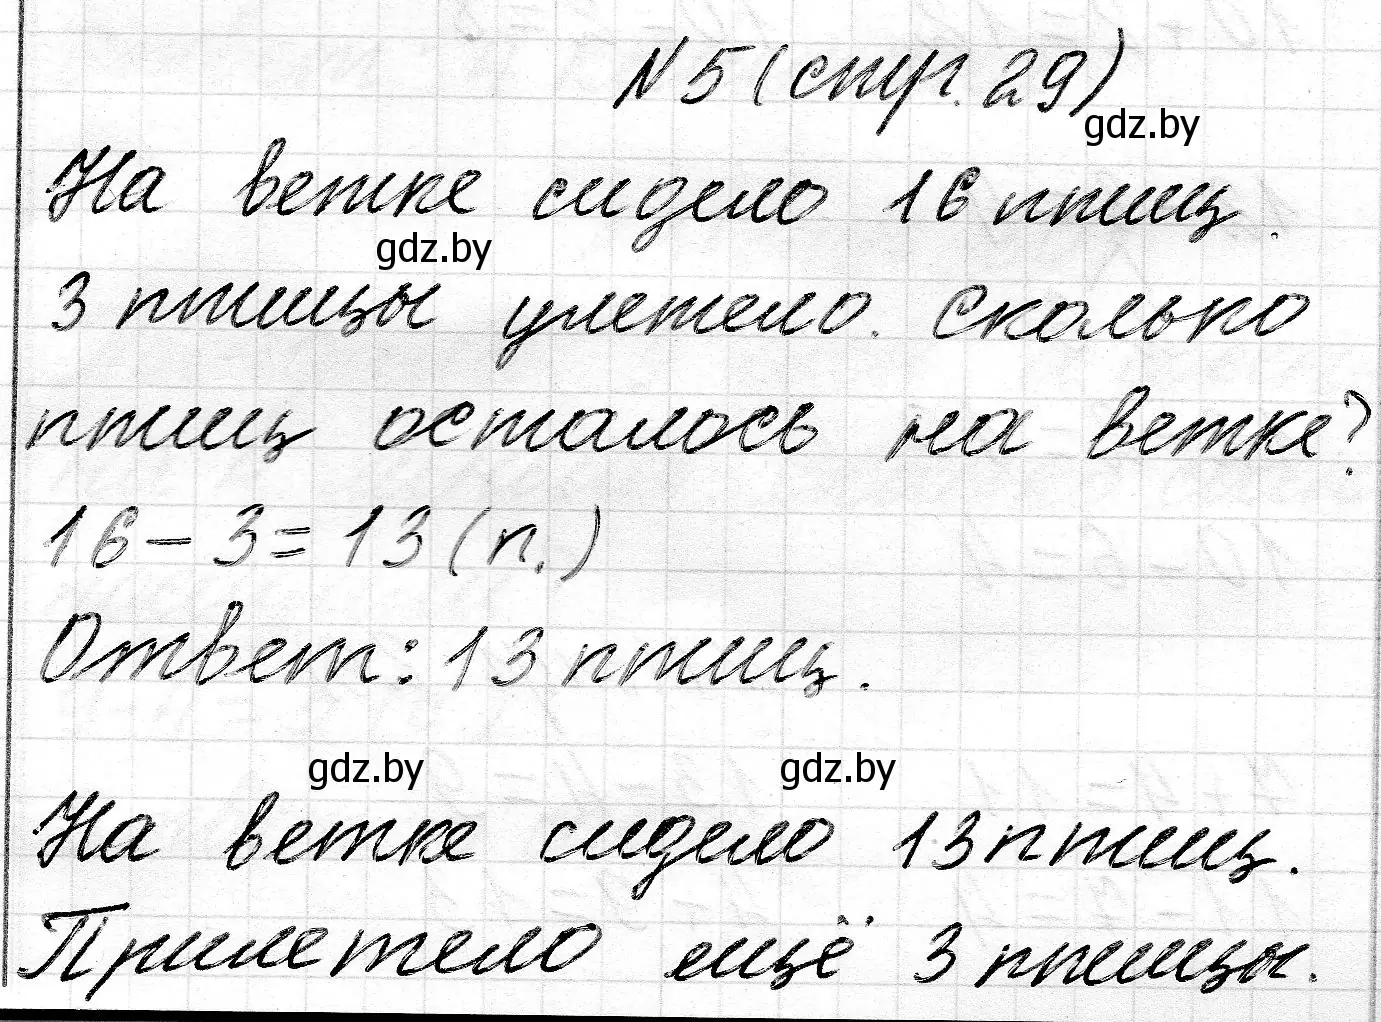 N 5 (стр. 29)
gdz.by
На ветке сидело 16 птиц.
gdz.by
3 птицы улетело. Сколько
птиц осталось на ветке?
16 - 3 = 13 (п.)
Ответ: 13 птиц.
gdz.by gdz.by
На ветке сидело 13 птиц.
Прилетело ещё 3 птицы.